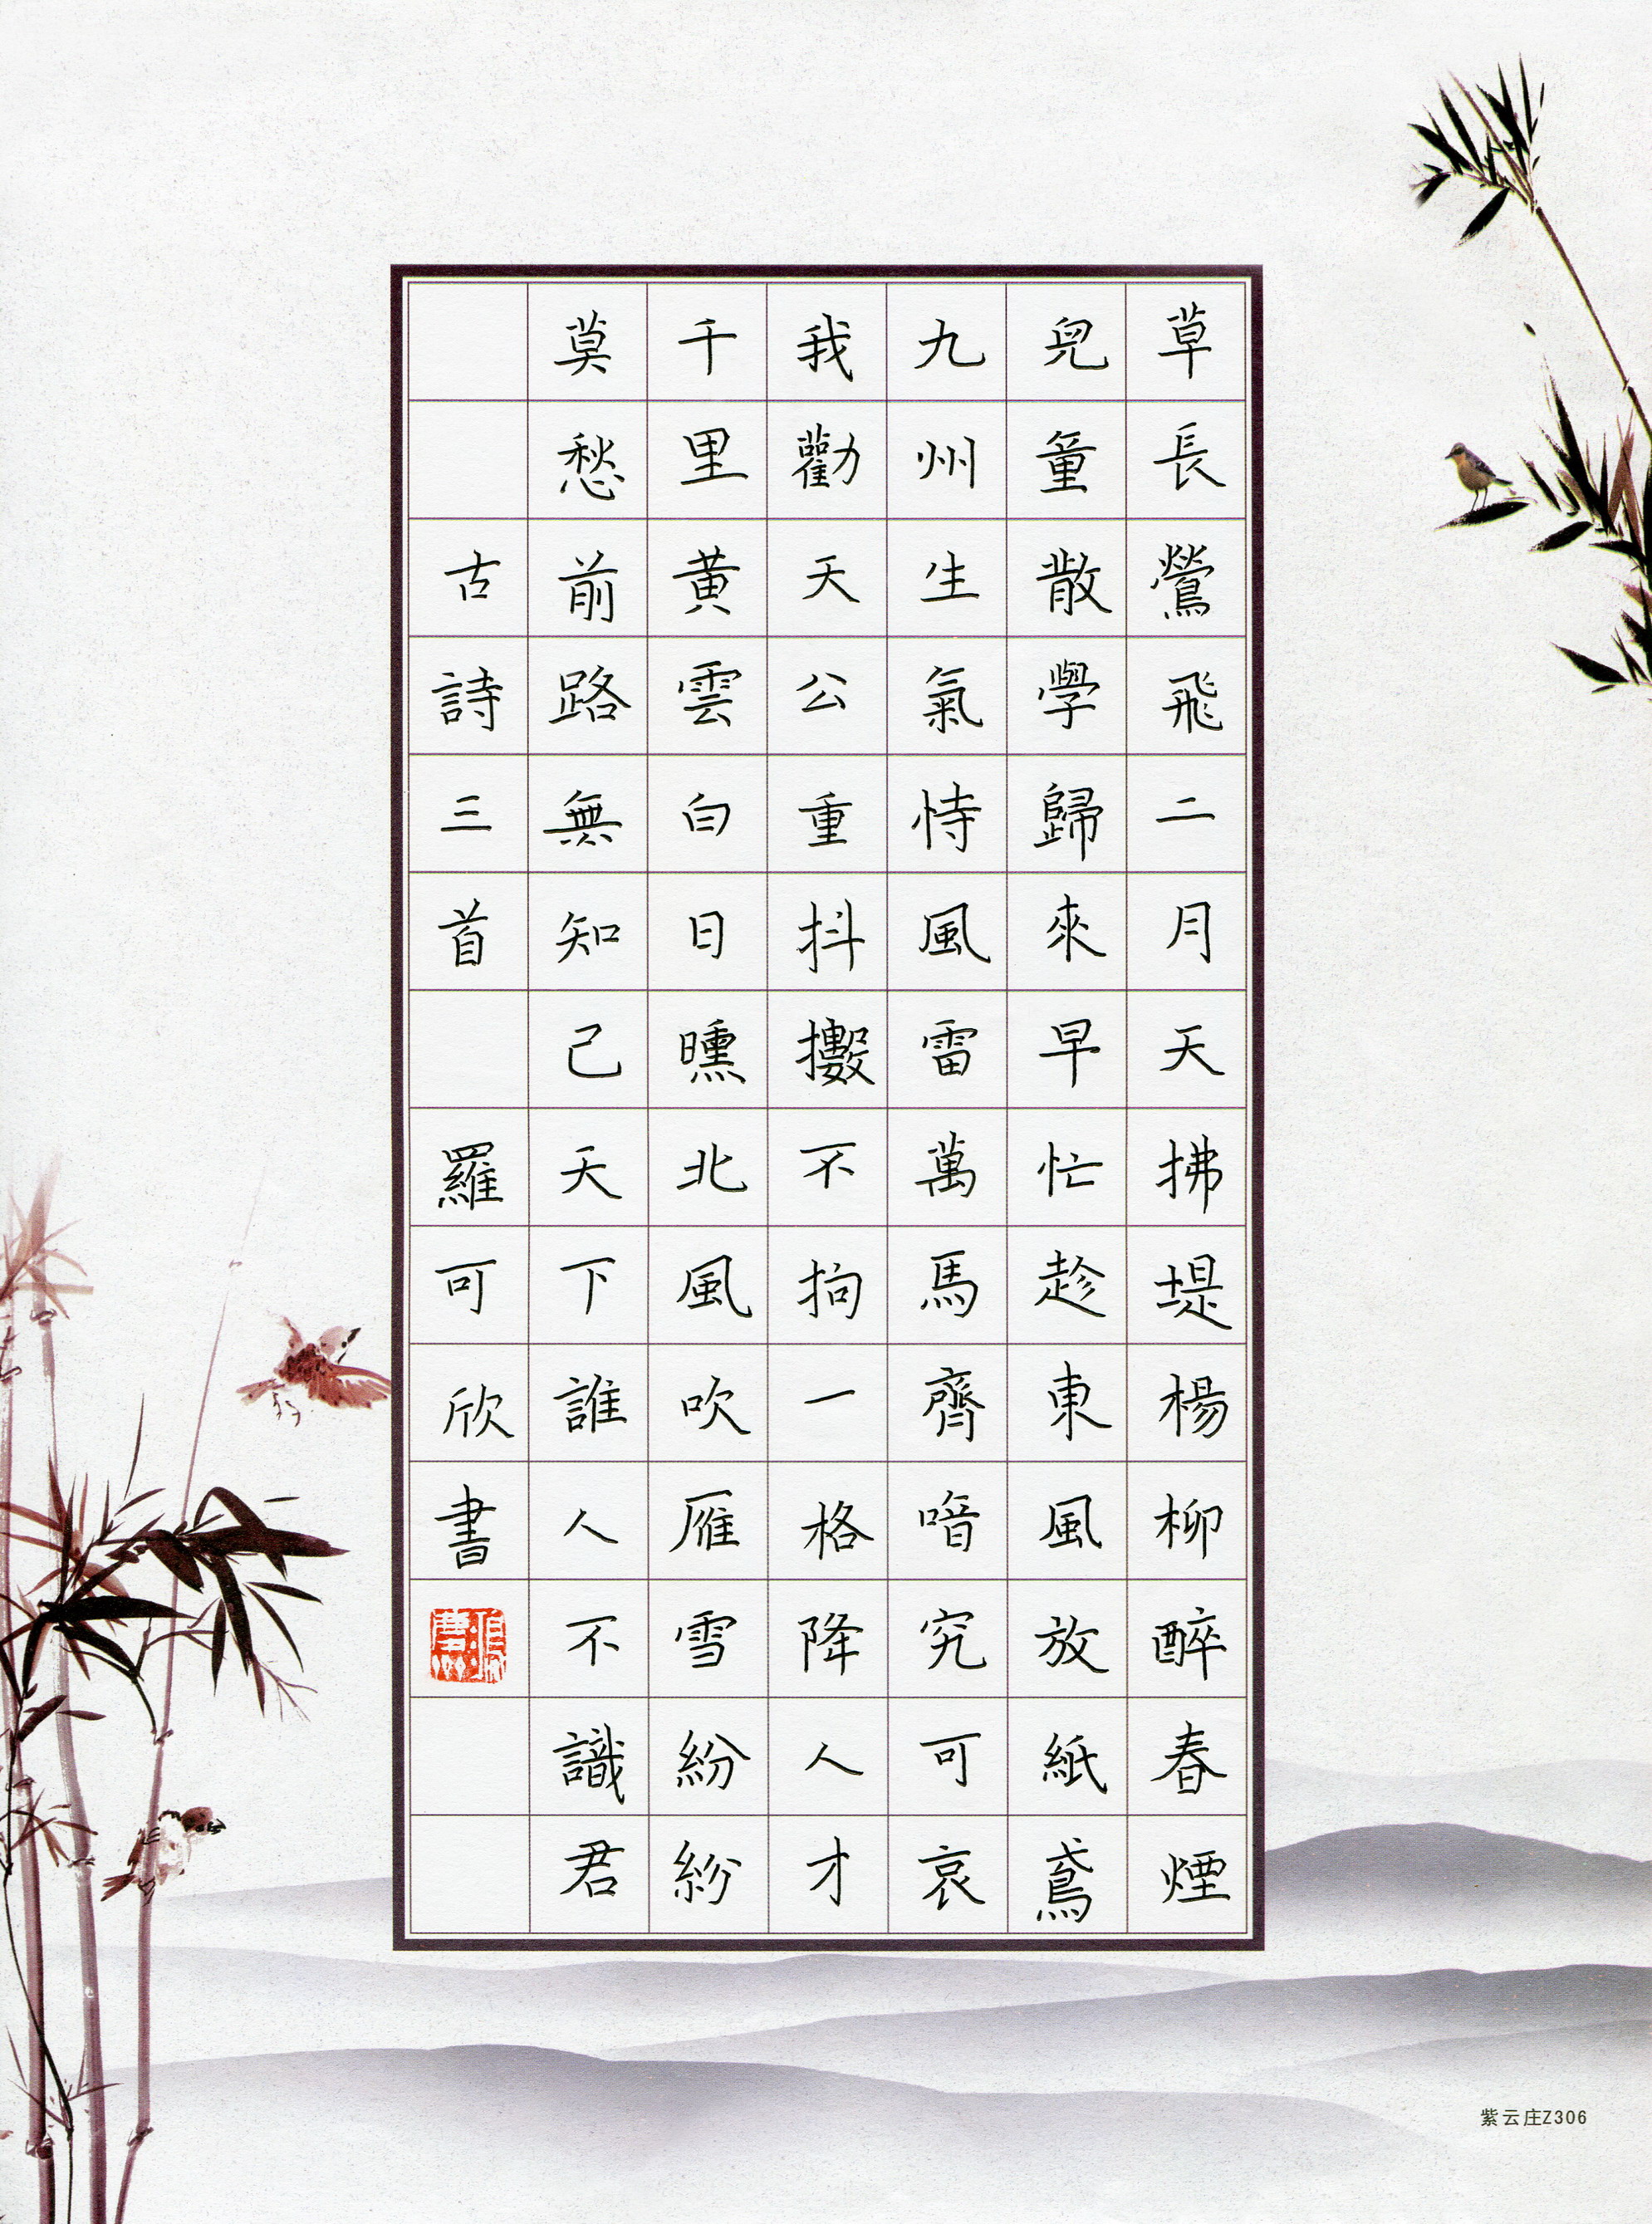 草長鶯飛二月天拂堤楊柳醉春煙
兒童散學歸來早忙趁東風放紙鳶
九州生氣恃風雷萬馬齊喑究可哀
我勸天公重抖擻不拘一格降人才
千里黃雲白日曛北風吹雁雪紛紛
莫愁前路無知己天下誰人不識君
古詩三首 羅可欣書
紫云庄Z306